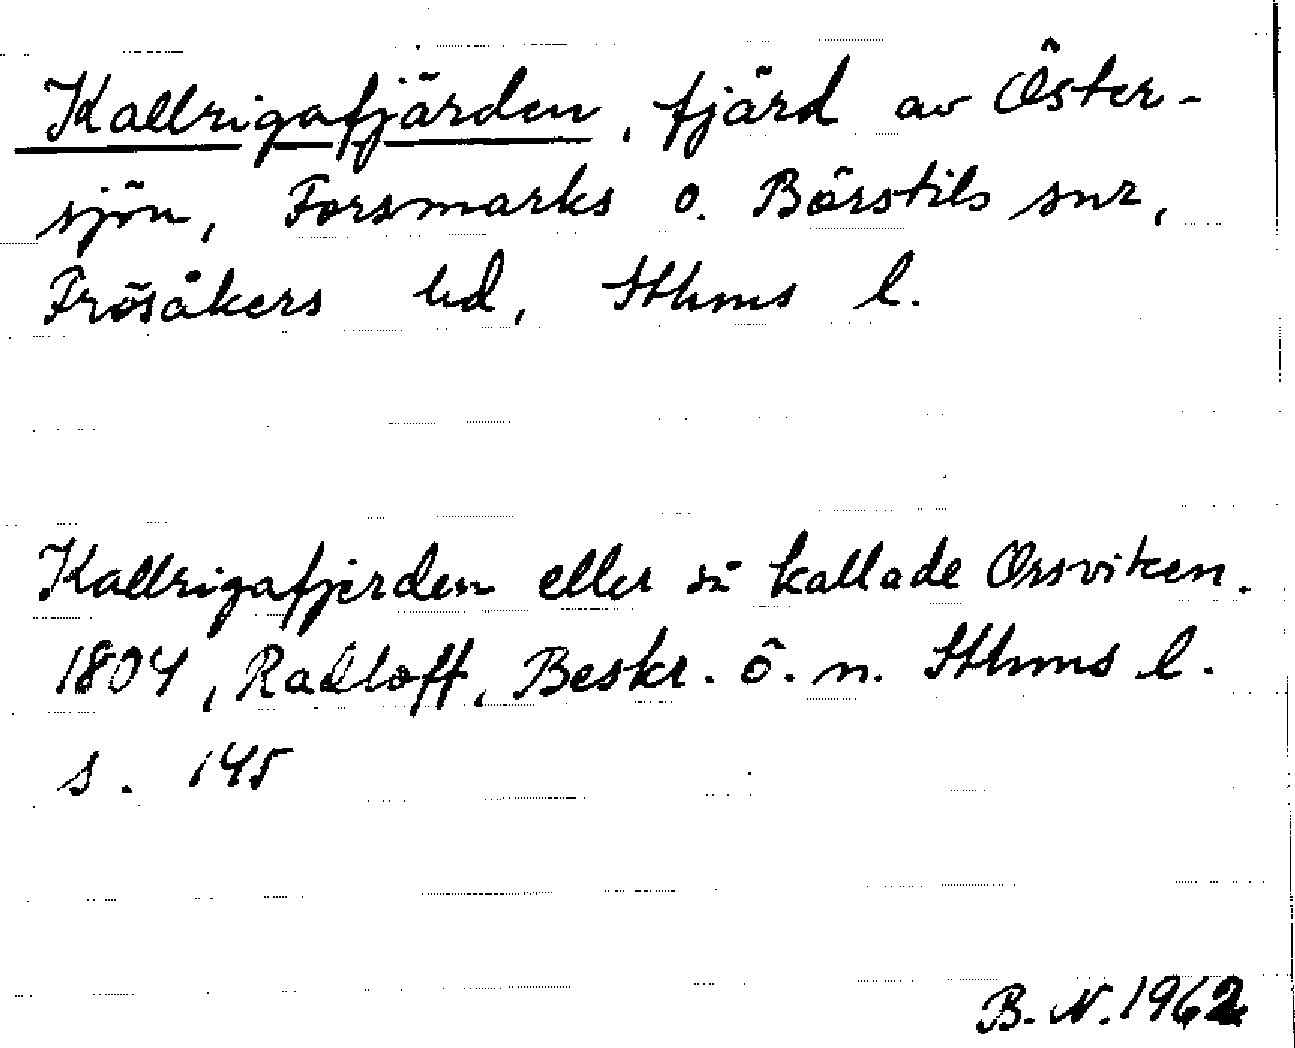 Kallrigafjärden, fjärd av Öster-
sjön, Forsmarks o. Börstils snr,
Frösåkers hd, Sthms l.
Kallrigafjerden eller så kallade Orsviken.
1804, Radloff, Beskr. ö. n. Sthms l.
s. 145
B. N. 1962